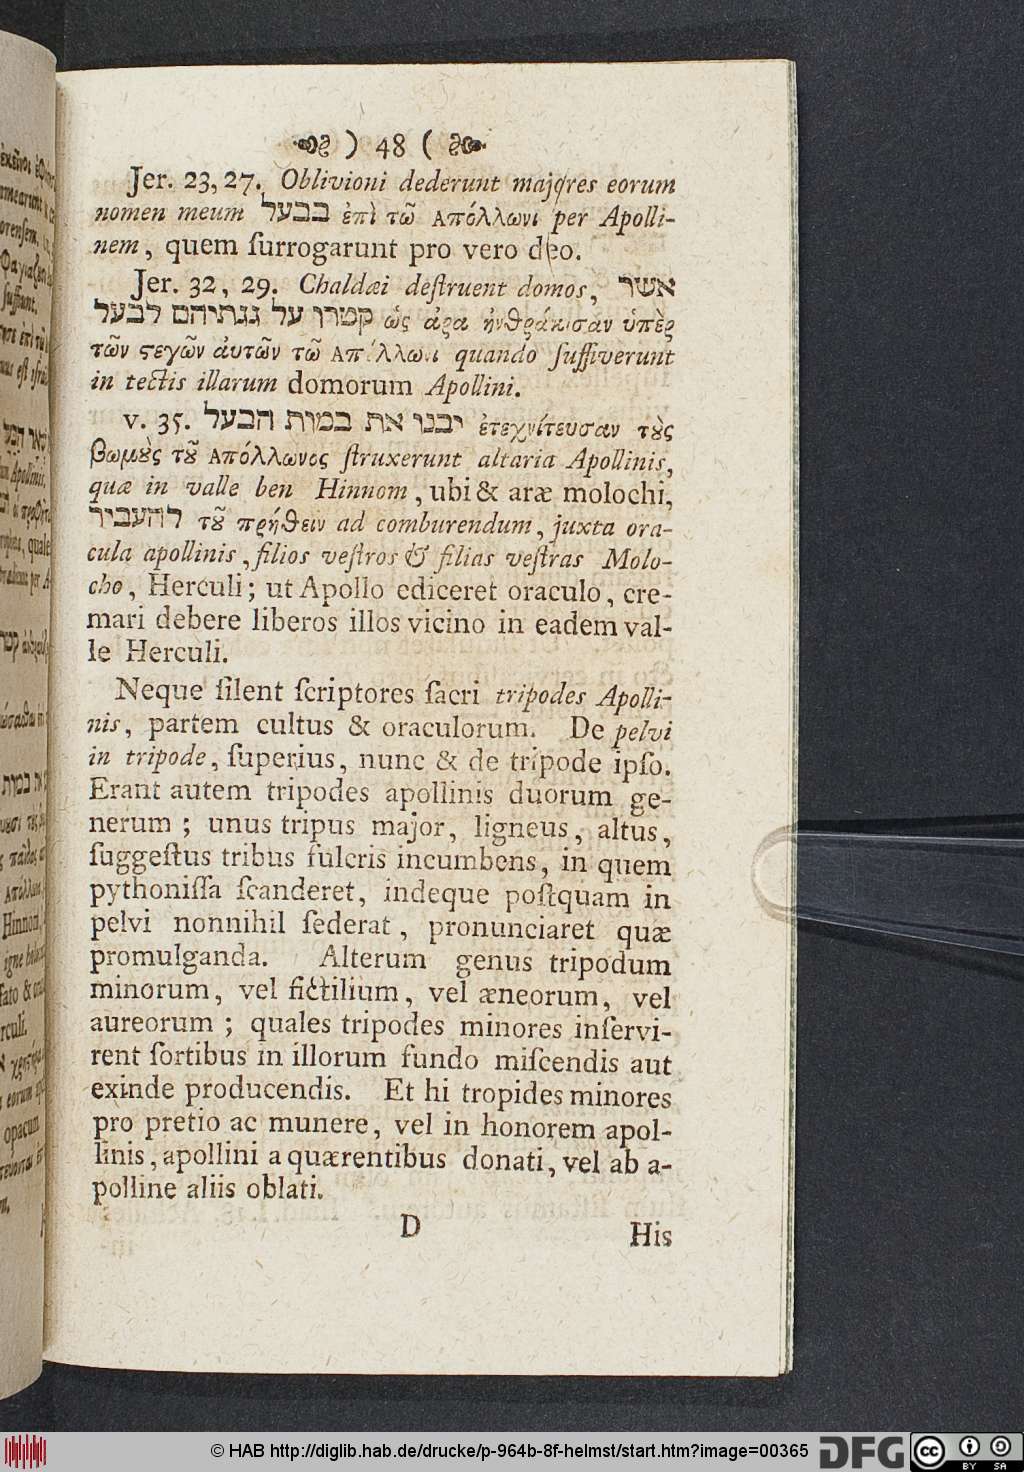 ) 48 (
Jer. 23, 27. Oblivioni dederunt majores eorum
nomen meum בבעל ἐπὶ τῶ Απόλλωνι per Apolli-
nem, quem ſurrogarunt pro vero deo.
Jer. 32, 29. Chaldæi deſtruent domos, אשר
קטרו על גגתיהם לבעל ὡς ἀρα ἠνθράκισαν ὑπὲρ
τῶν ςεγῶν ἀυτῶν τῶ Απόλλωνι quando ſuffiverunt
in tectis illarum domorum Apollini.
v. 35. יבנו את במות הבעל ἐτεχνίτευσαν τȣ̀ς
βωμȣ̀ς τȣ͂ Απόλλωνος ſtruxerunt altaria Apollinis,
quæ in valle ben Hinnom, ubi & aræ molochi,
להעביר τȣ͂ πρήθειν ad comburendum, juxta ora-
cula apollinis, filios veſtros & filias veſtras Molo-
cho, Herculi; ut Apollo ediceret oraculo, cre-
mari debere liberos illos vicino in eadem val-
le Herculi.
Neque ſilent ſcriptores ſacri tripodes Apolli-
nis, partem cultus & oraculorum. De pelvi
in tripode, ſuperius, nunc & de tripode ipſo.
Erant autem tripodes apollinis duorum ge-
nerum; unus tripus major, ligneus, altus,
ſuggeſtus tribus fulcris incumbens, in quem
pythoniſſa ſcanderet, indeque poſtquam in
pelvi nonnihil ſederat, pronunciaret quæ
promulganda. Alterum genus tripodum
minorum, vel fictilium, vel æneorum, vel
aureorum; quales tripodes minores inſervi-
rent ſortibus in illorum fundo miſcendis aut
exinde producendis. Et hi tropides minores
pro pretio ac munere, vel in honorem apol-
linis, apollini a quærentibus donati, vel ab a-
polline aliis oblati.
D His
© HAB http://diglib.hab.de/drucke/p-964b-8f-helmst/start.htm?image=00365 DFG cc BY SA